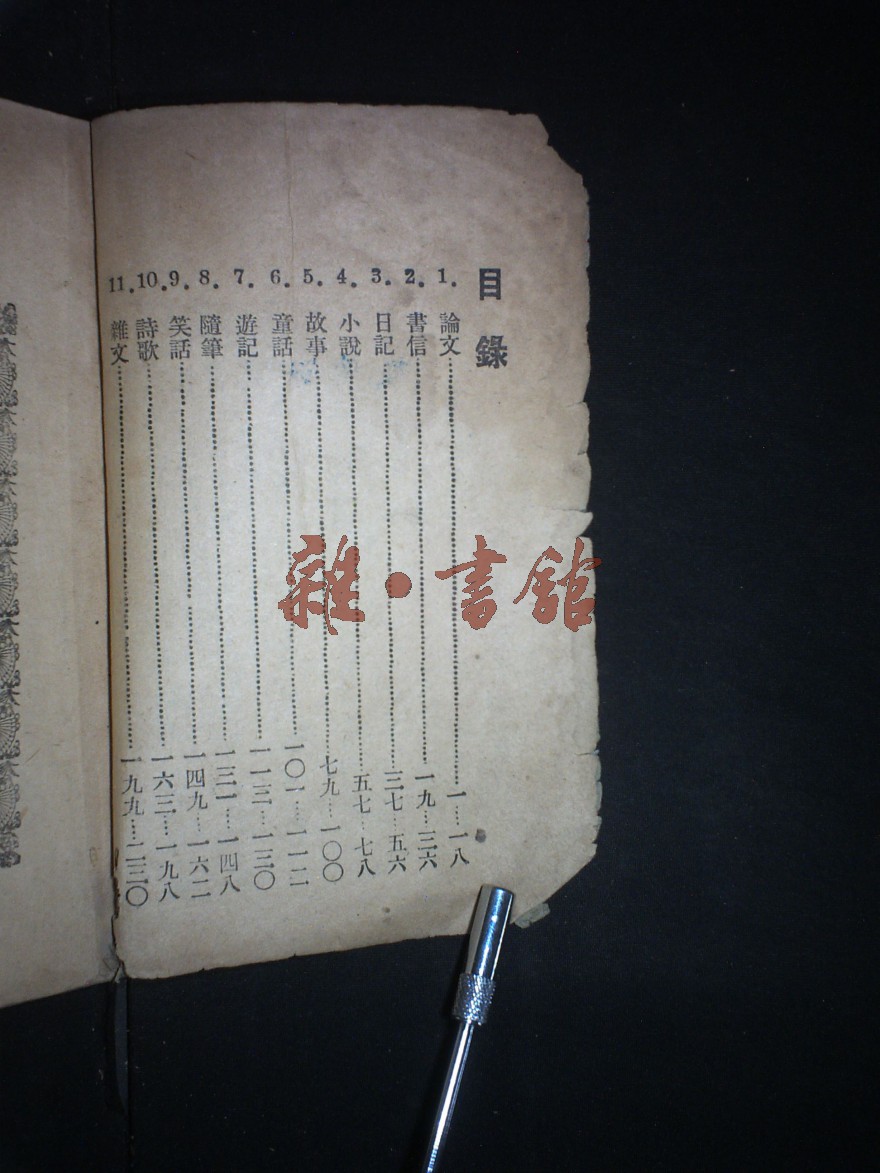 目錄
1. 論文……一…一八
2. 書信……一九…三六
3. 日記……三七…五六
4. 小說……五七…七八
5. 故事……七九…一〇〇
6. 童話……一〇一…一一二
7. 遊記……一一三…一三〇
8. 隨筆……一三一…一四八
9. 笑話……一四九…一六二
10. 詩歌……一六三…一九八
11. 雜文……一九九…二三〇
雜·書館